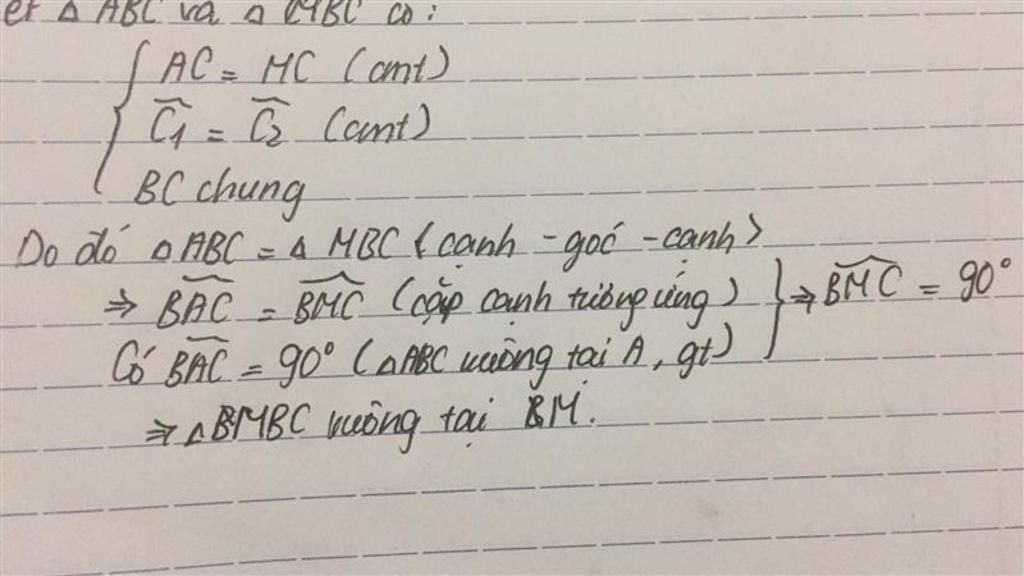 ét △ ABC và △ MBC có:
AC = MC (cmt)
Ĉ1 = Ĉ2 (cmt)
BC chung
Do đó △ABC = △ MBC (cạnh - góc - cạnh)
⇒ BAC = BMC (cặp cạnh tương ứng) } ⇒ BMC = 90°
Có BAC = 90° (△ABC vuông tại A, gt)
⇒ △BMBC vuông tại BM.